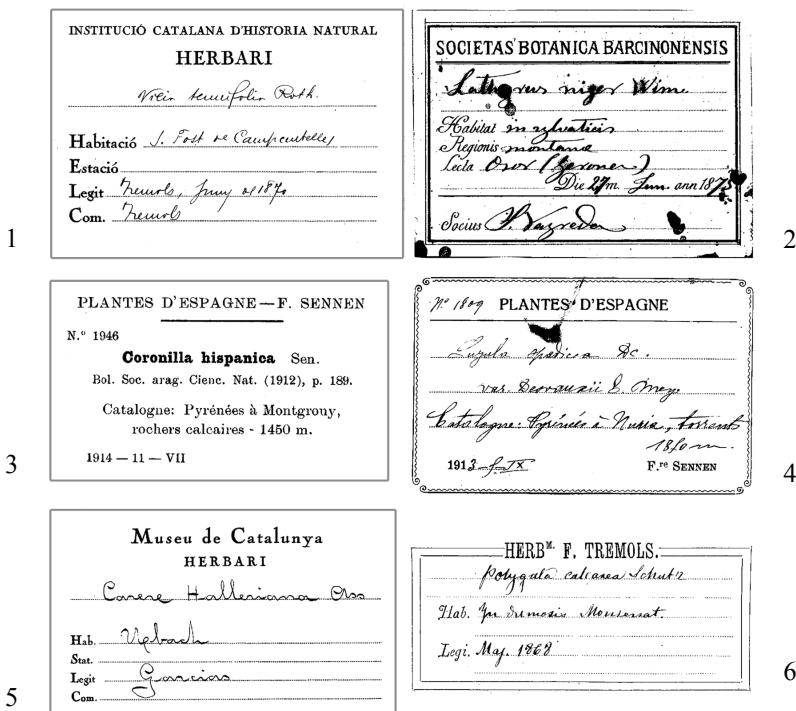 INSTITUCIÓ CATALANA D'HISTORIA NATURAL
HERBARI
Vicia tenuifolia Roth.
Habitació S. Fost de Campcentelles
Estació
Legit Tremols, Juny de 1870
Com. Tremols
1
SOCIETAS BOTANICA BARCINONENSIS
Lathyrus niger Wim.
Habitat in sylvaticis
Regionis montanae
Lecta Osor (Gerones)
Die 27 m. Jun. ann 187
Socius Vayreda
2
PLANTES D'ESPAGNE — F. SENNEN
N.° 1946
Coronilla hispanica Sen.
Bol. Soc. arag. Cienc. Nat. (1912), p. 189.
Catalogne: Pyrénées à Montgrony,
rochers calcaires - 1450 m.
1914 — 11 — VII
3
Nº 1809 PLANTES D'ESPAGNE
Luzula spadicea DC.
var. E. Mey.
Catalogne: Pyrénées à Nuria, torrents
1850 m.
1913 IX F.re SENNEN
4
Museu de Catalunya
HERBARI
Carex Halleriana Asso
Hab.
Stat.
Legit Garcias
Com.
5
HERBM. F. TREMOLS.
Polygala calcarea Schultz
Hab. In dumosis Monserrat.
Legi. Maj. 1868
6